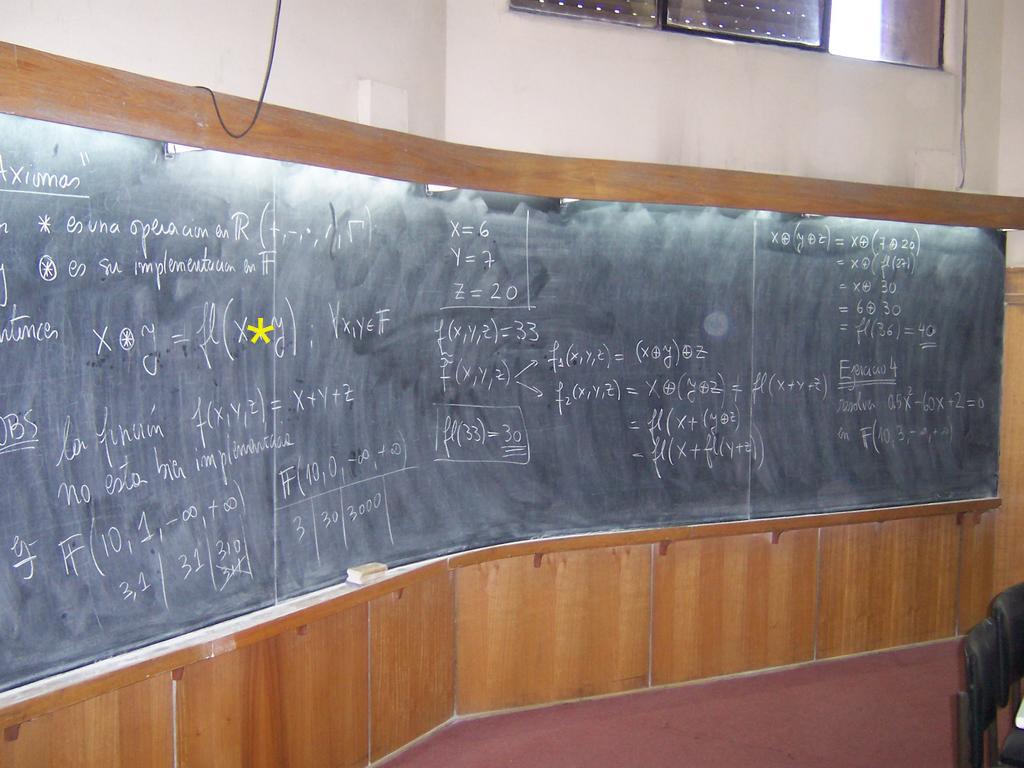 Axiomas"
* es una operacion en ℝ (+, -, ·, /, √)
⊛ es su implementacion en 𝔽
entonces x ⊛ y = fl(x * y) ; ∀ x, y ∈ 𝔽
OBS la función f(x, y, z) = x + y + z
no esta bien implementada
𝔽(10, 1, -∞, +∞)
3,1 | 31 | 310
𝔽(10, 0, -∞, +∞)
3 | 30 | 3000
x = 6
y = 7
z = 20
f(x, y, z) = 33
f̃(x, y, z)
f₁(x, y, z) = (x ⊕ y) ⊕ z
f₂(x, y, z) = x ⊕ (y ⊕ z) = fl(x + y + z)
= fl(x + (y ⊕ z)
= fl(x + fl(y + z))
fl(33) = 30
x ⊕ (y ⊕ z) = x ⊕ (7 ⊕ 20)
= x ⊕ (fl(27)
= x ⊕ 30
= 6 ⊕ 30
= fl(36) = 40
Ejercicio 4
resolver 0.5x² - 60x + 2 = 0
en 𝔽(10, 3, -∞, +∞)